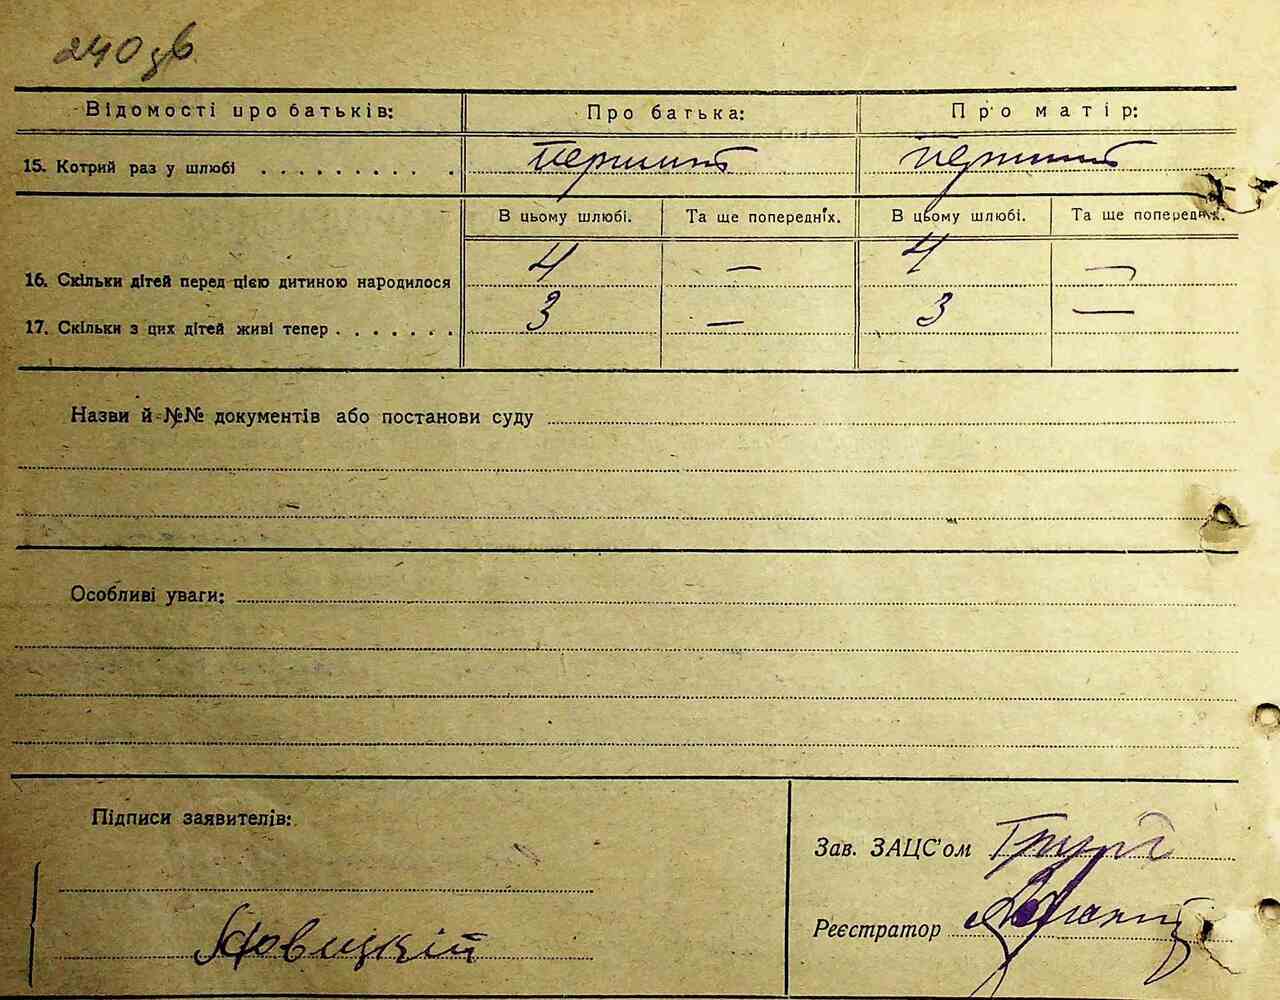 240 зв
Відомості про батьків: Про батька: Про матір:
15. Котрий раз у шлюбі . . . . . . . . . . перший перший
В цьому шлюбі. Та ще попередніх. В цьому шлюбі. Та ще попередніх.
16. Скільки дітей перед цією дитиною народилося 4 — 4 —
17. Скільки з цих дітей живі тепер . . . . . . . 3 — 3 —
Назви й №№ документів або постанови суду
Особливі уваги:
Підписи заявителів:
Зав. ЗАЦС'ом
Реєстратор